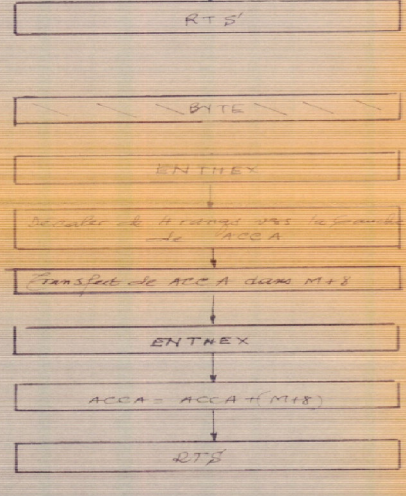 RTS
BYTE
ENTHEX
Décaler de 4 rangs vers la gauche
de ACCA
Transfert de ACCA dans M+8
ENTHEX
ACCA = ACCA + (M+8)
RTS